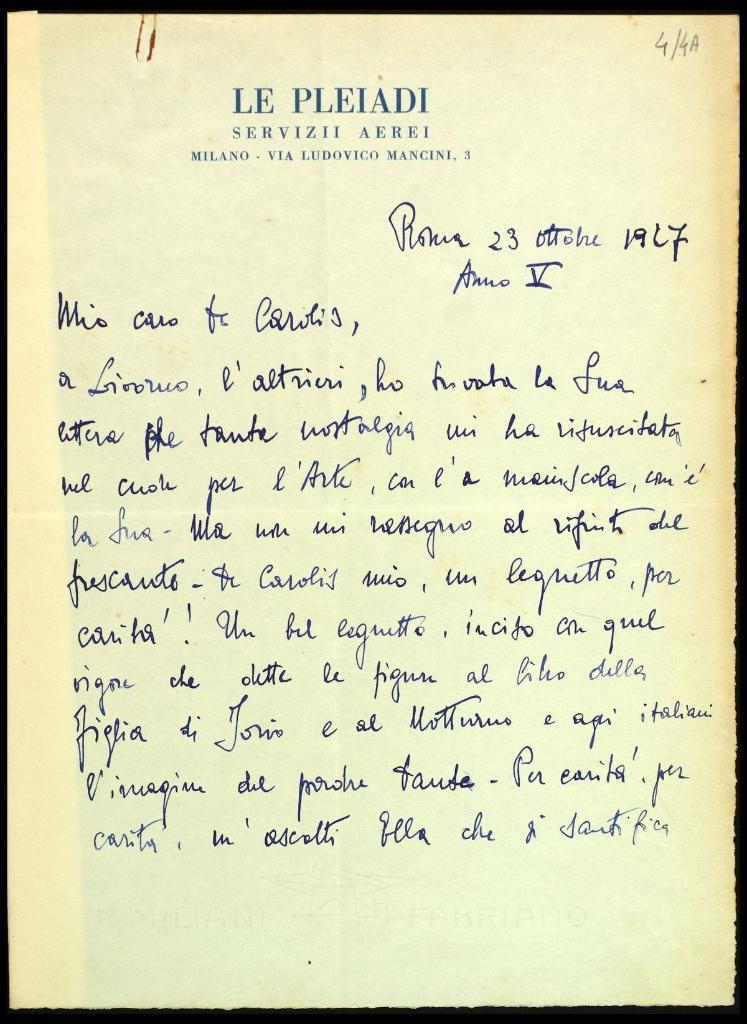 4/4A
LE PLEIADI
SERVIZII AEREI
MILANO - VIA LUDOVICO MANCINI, 3
Roma 23 ottobre 1927
Anno V
Mio caro De Carolis,
a Livorno, l'altrieri, ho trovata la Sua
lettera che tanta nostalgia mi ha risuscitata
nel cuore per l'Arte, con l'a maiuscola, com'è
la Sua - Ma non mi rassegno al rifiuto del
frescante - De Carolis mio, un legnetto, per
carità! Un bel legnetto, inciso con quel
vigore che dette le figure al libro della
Figlia di Jorio e al Notturno e agli italiani
l'imagine del padre Dante - Per carità, per
carità, m'ascolti Ella che si santifica
P. MILIANI FABRIANO